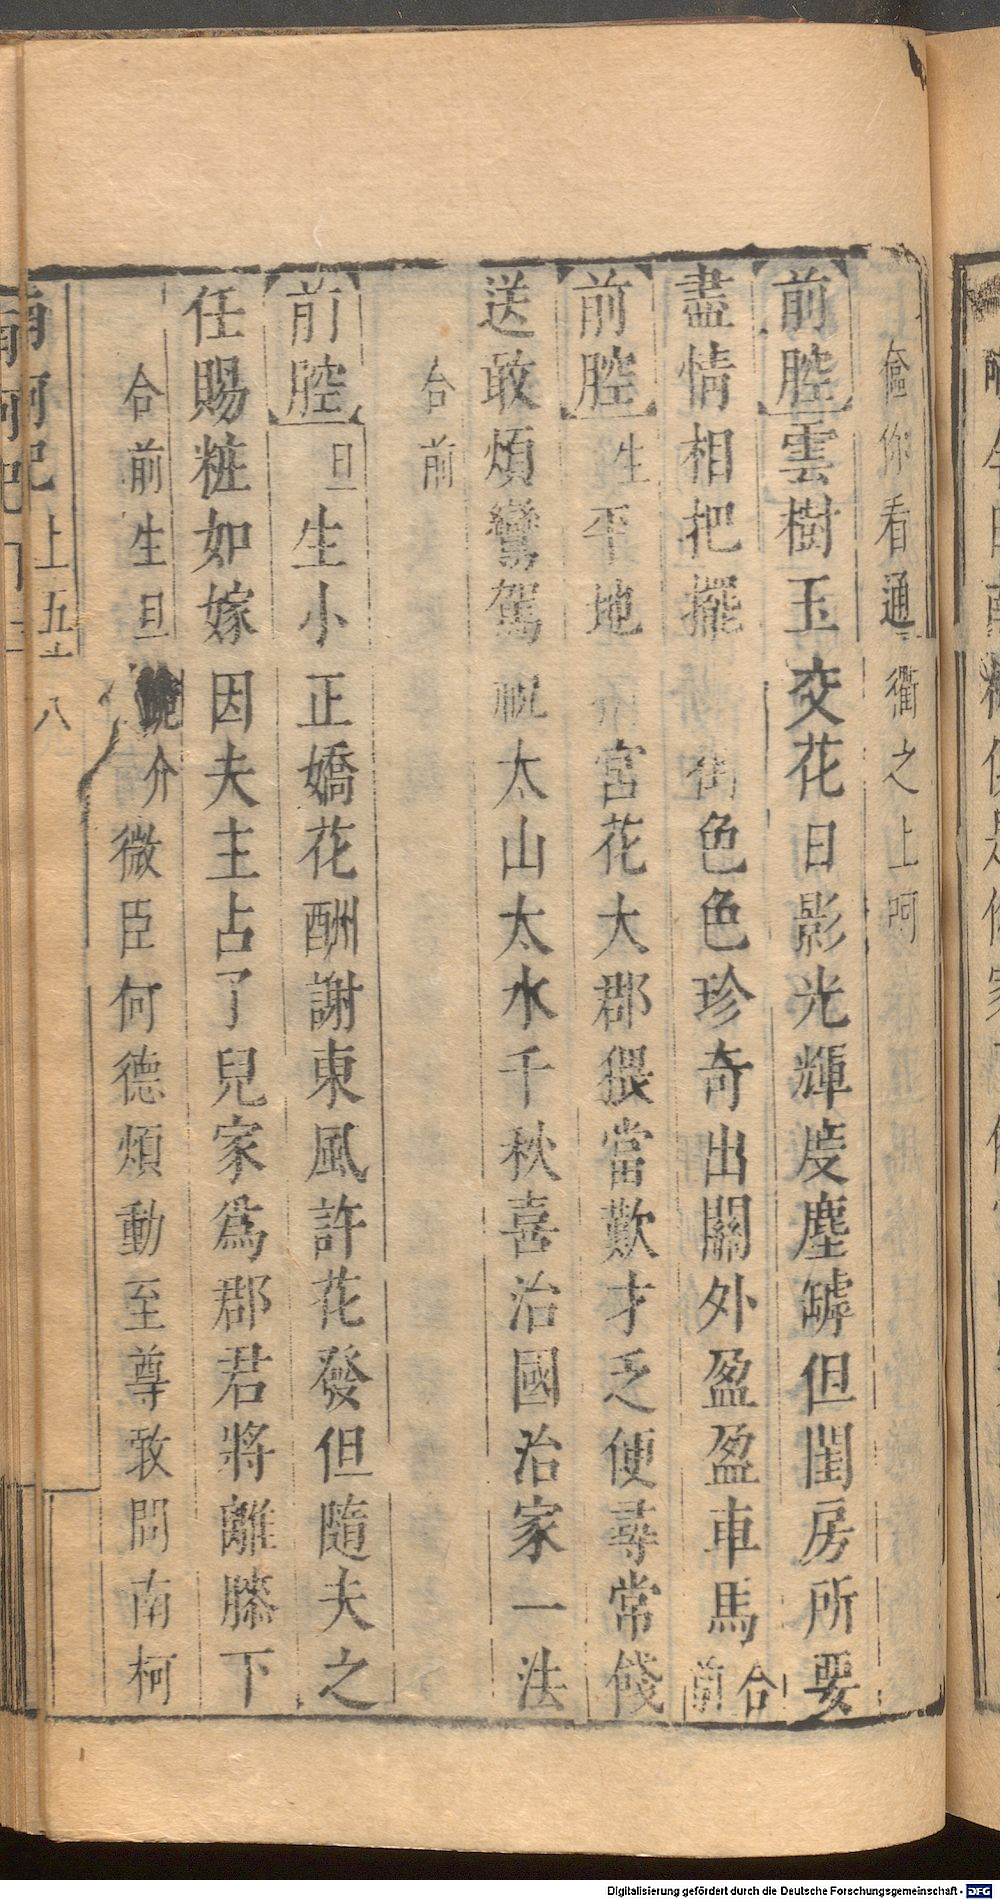 你看通衢之上呵
前腔 雲樹玉交花日影光輝度塵罅但閨房所要
盡情相把擺 街色色珍奇出關外盈盈車馬 合前
前腔 生 平地 宮花大郡猥當歎才乏便尋常餞
送敢煩鸞駕 祝太山太水千秋喜治國治家一法
合前
前腔 旦 生小正嬌花酬謝東風許花發但隨夫之
任賜粧如嫁因夫主占了兒家爲郡君將離膝下
合前生旦 介微臣何德煩動至尊敢問南柯
南柯記 上五十八
Digitalisierung gefördert durch die Deutsche Forschungsgemeinschaft - DFG